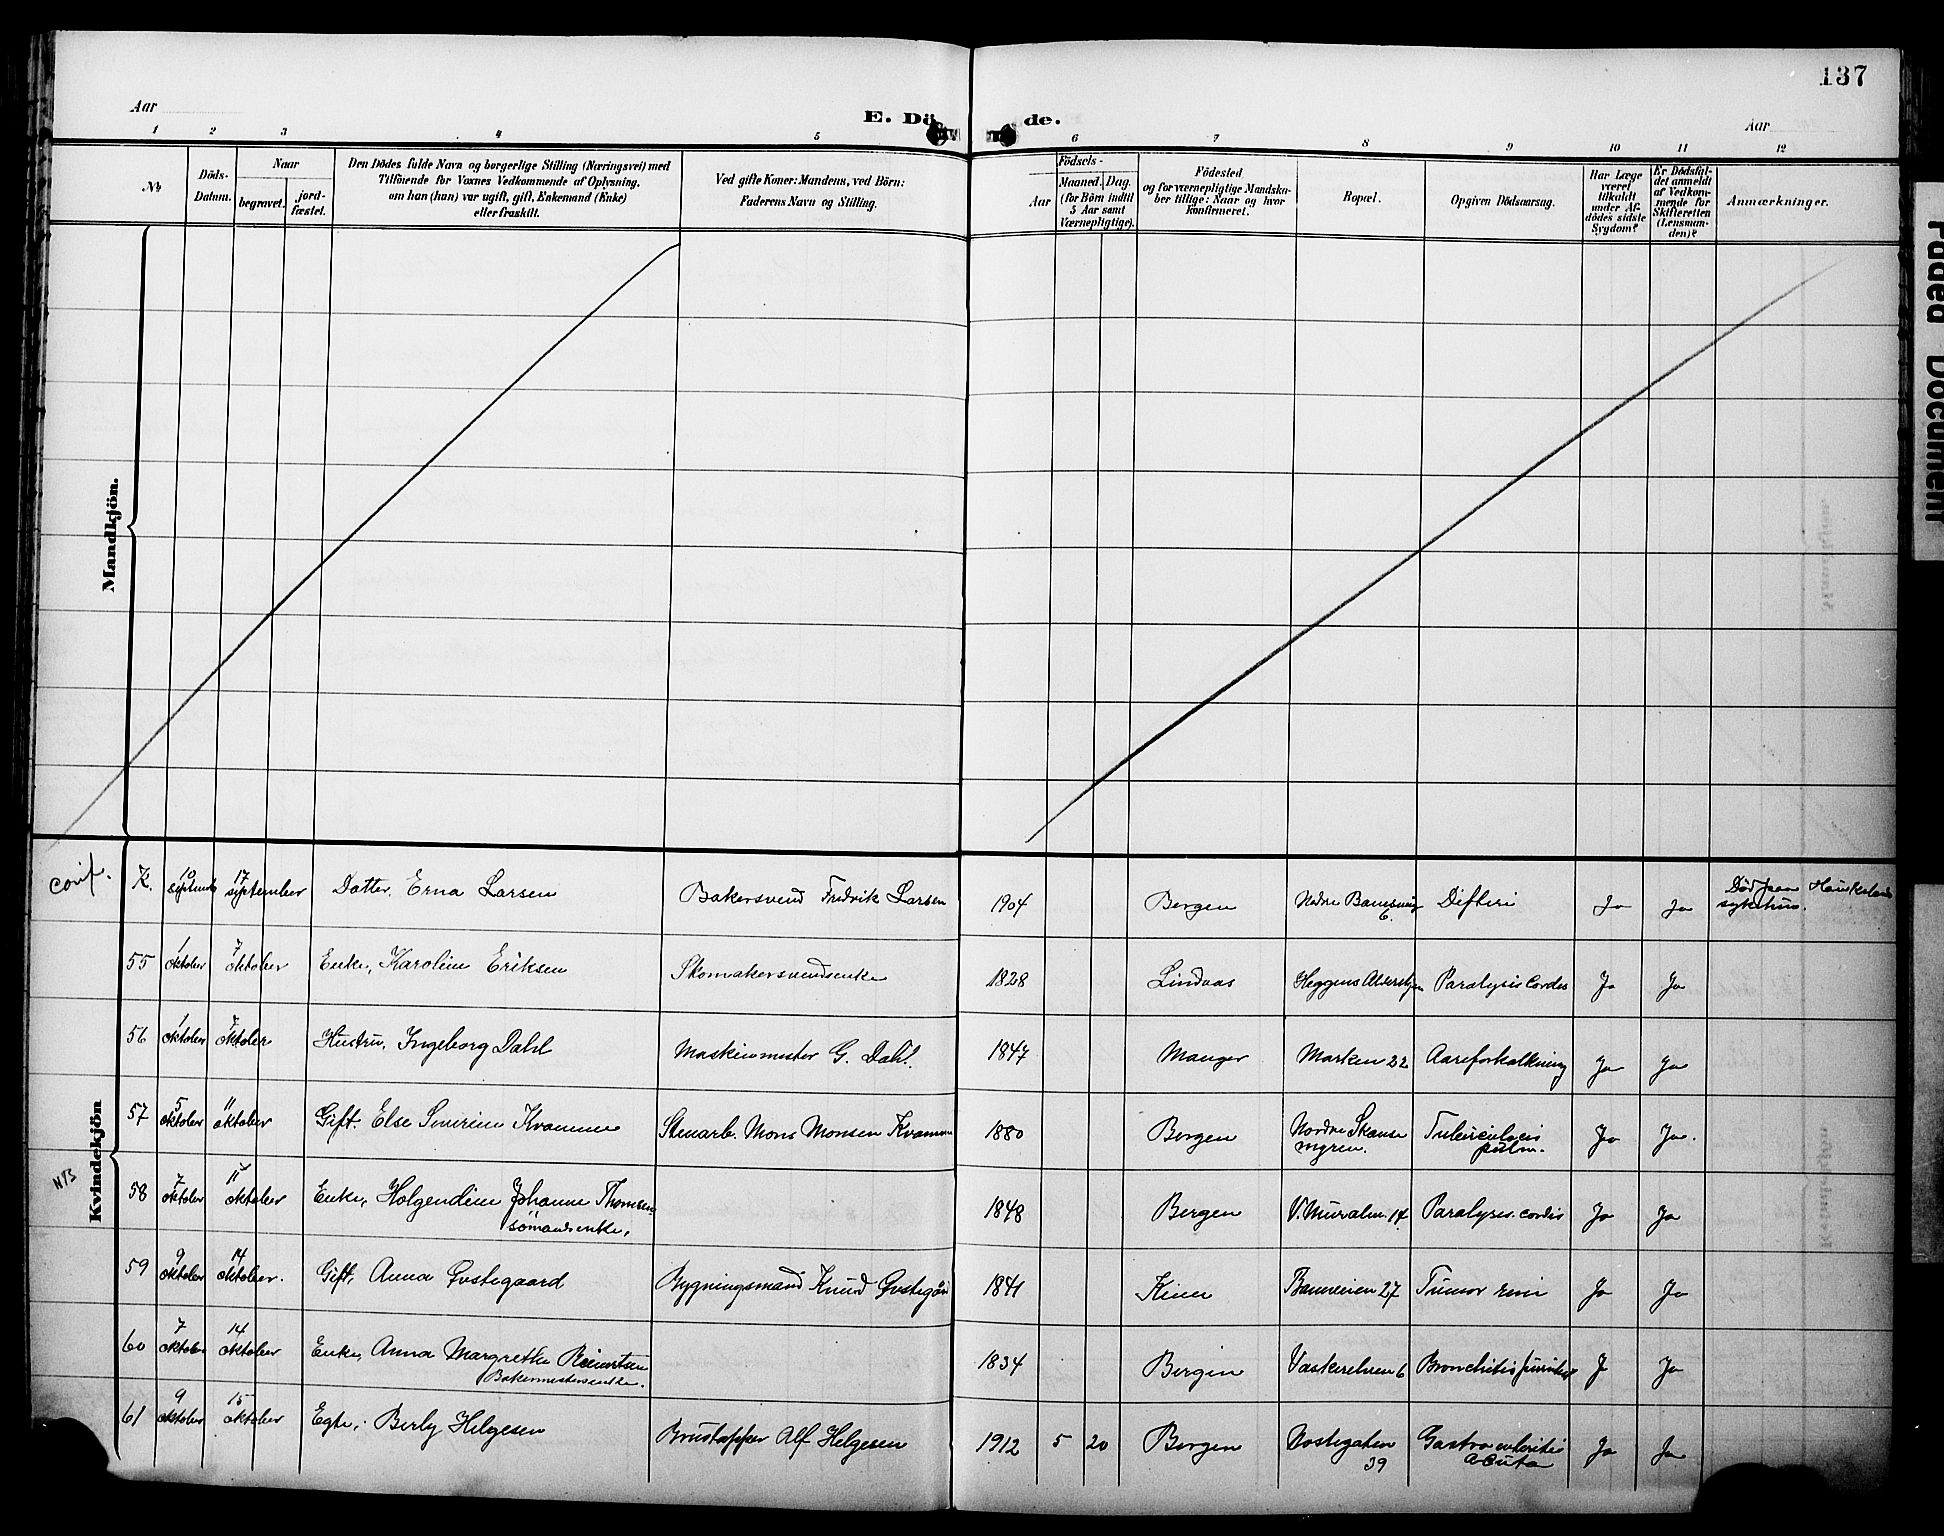 137
Aar
E. Dö
de.
Aar
1 2 3 4 5 6 7 8 9 10 11 12
No
Döds-
Datum.
Naar
begravet.
jord-
fæstet.
Den Dödes fulde Navn og borgerlige Stilling (Næringsvei) med
Tilföiende for Voxnes Vedkommende af Oplysning,
om han (hun) var ugift, gift, Enkemand (Enke)
eller fraskilt.
Ved gifte Koner: Mandens, ved Börn:
Faderens Navn og Stilling.
Födsels-
Aar
Maaned.
Dag.
(for Börn indtil
5 Aar samt
Værnepligtige).
Födested
og for værnepligtige Mandska-
ber tillige: Naar og hvor
konfirmeret.
Bopæl.
Opgiven Dödsaarsag.
Har Læge
været
tilkaldt
under Af-
dödes sidste
Sygdom?
Er Dödsfal-
det anmeldt
af Vedkom-
mende for
Skifteretten
(Lensman-
den)?
Anmærkninger.
Mandkjön.
Kvindekjön
conf. K. 10 17 september Datter, Erna Larsen Bakersvend Fredrik Larsen 1904 Bergen Difteri Ja Ja
sykehus.
55 1 oktober 7 oktober Enke, Karoline Eriksen Skomakersvendsenke 1828 Lindaas Paralysis cordis Ja Ja
56 1 oktober 7 oktober Hustru, Ingeborg Dahl Maskinmester G. Dahl. 1847 Manger Marken 22 Aareforkalkning Ja Ja
57 5 oktober 11 oktober Gift. Else Severine Kvamme Stenarb. Mons Monsen Kvamme 1880 Bergen Nordre Skanse
myren. Tuberculosis
pulm. Ja Ja.
NB 58 7 oktober 11 oktober Enke, Holgendine Johanne Thomsen
sömandsenke, 1848 Bergen V. Muralm. 14 Paralysis cordis Ja Ja
59 9 oktober 14 oktober. Gift, Anna Gvstegaard Bygningsmand Knud 1841 Kinn 27 Tumor Ja Ja
60 7 oktober 14 oktober Enke, Anna Margrethe Reinertsen
Bakermestersenke. 1834 Bergen Vaskerelven 6 Bronchitis J Ja
61 9 oktober 15 oktober Egte, Berly Helgesen Brustapper Alf Helgesen 1912 5 20 Bergen Nostegaten
39 Gastroenteritis
acuta Ja Ja
Faded Document